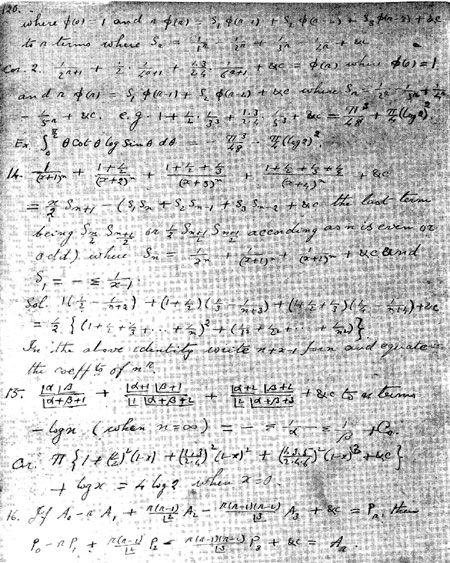 120.
where φ(0) = 1 and n φ(n) = S₁ φ(n-1) + S₂ φ(n-2) + S₃ φ(n-3) + &c
to n terms where Sₙ = 1/1ⁿ - 1/2ⁿ + 1/3ⁿ - 1/4ⁿ + &c
Cor. 2. 1/2ⁿ⁺¹ + 1/2 · 1/4ⁿ⁺¹ + 1·3/2·4 · 1/6ⁿ⁺¹ + &c = φ(n) where φ(0) = 1
and n φ(n) = S₁ φ(n-1) + S₂ φ(n-2) + &c where Sₙ =
+ &c e.g. 1 + 1/2 · 1/3³ + 1·3/2·4 · 1/5³ + &c = π³/48 + π/4 (log 2)²
Ex. ∫₀ θ Cot θ log Sin θ dθ = - π³/48 - π/4 (log 2)²
14. 1/(x+1)ⁿ + (1+1/2)/(x+2)ⁿ + (1+1/2+1/3)/(x+3)ⁿ + (1+1/2+1/3+1/4)/(x+4)ⁿ + &c
= n/2 Sₙ₊₁ - (S₁Sₙ + S₂Sₙ₋₁ + S₃Sₙ₋₂ + &c the last term
being according as n is even or
odd) where Sₙ = 1/xⁿ + 1/(x+1)ⁿ + 1/(x+2)ⁿ + &c and
S₁ = - Σ 1/(x-1)
Sol. 1(1/2 - 1/(n+2)) + (1+1/2)(1/3 - 1/(n+3)) + (1+1/2+1/3)(1/4 - 1/(n+4)) + &c
= 1/2 {(1 + 1/2 + 1/3 + ... + 1/n)² + (1/1² + 1/2² + ... + 1/n²)}
In the above identity write n+x-1 for n and equate
the coeffts of nʳ.
15. |α |β / |α+β+1 + |α+1 |β+1 / |1 |α+β+2 + |α+2 |β+2 / |2 |α+β+3 + &c to n terms
- log n (when n = ∞) = - Σ 1/α - Σ 1/β + C₀.
Cor. π {1 + (1/2)²(1-x) + (1·3/2·4)²(1-x)² + (1·3·5/2·4·6)²(1-x)³ + &c}
+ log x = 4 log 2 when x = 0.
16. If A₀ - n A₁ + n(n-1)/|2 A₂ - n(n-1)(n-2)/|3 A₃ + &c = Pₙ, then
P₀ - n P₁ + n(n-1)/|2 P₂ - n(n-1)(n-2)/|3 P₃ + &c = Aₙ.